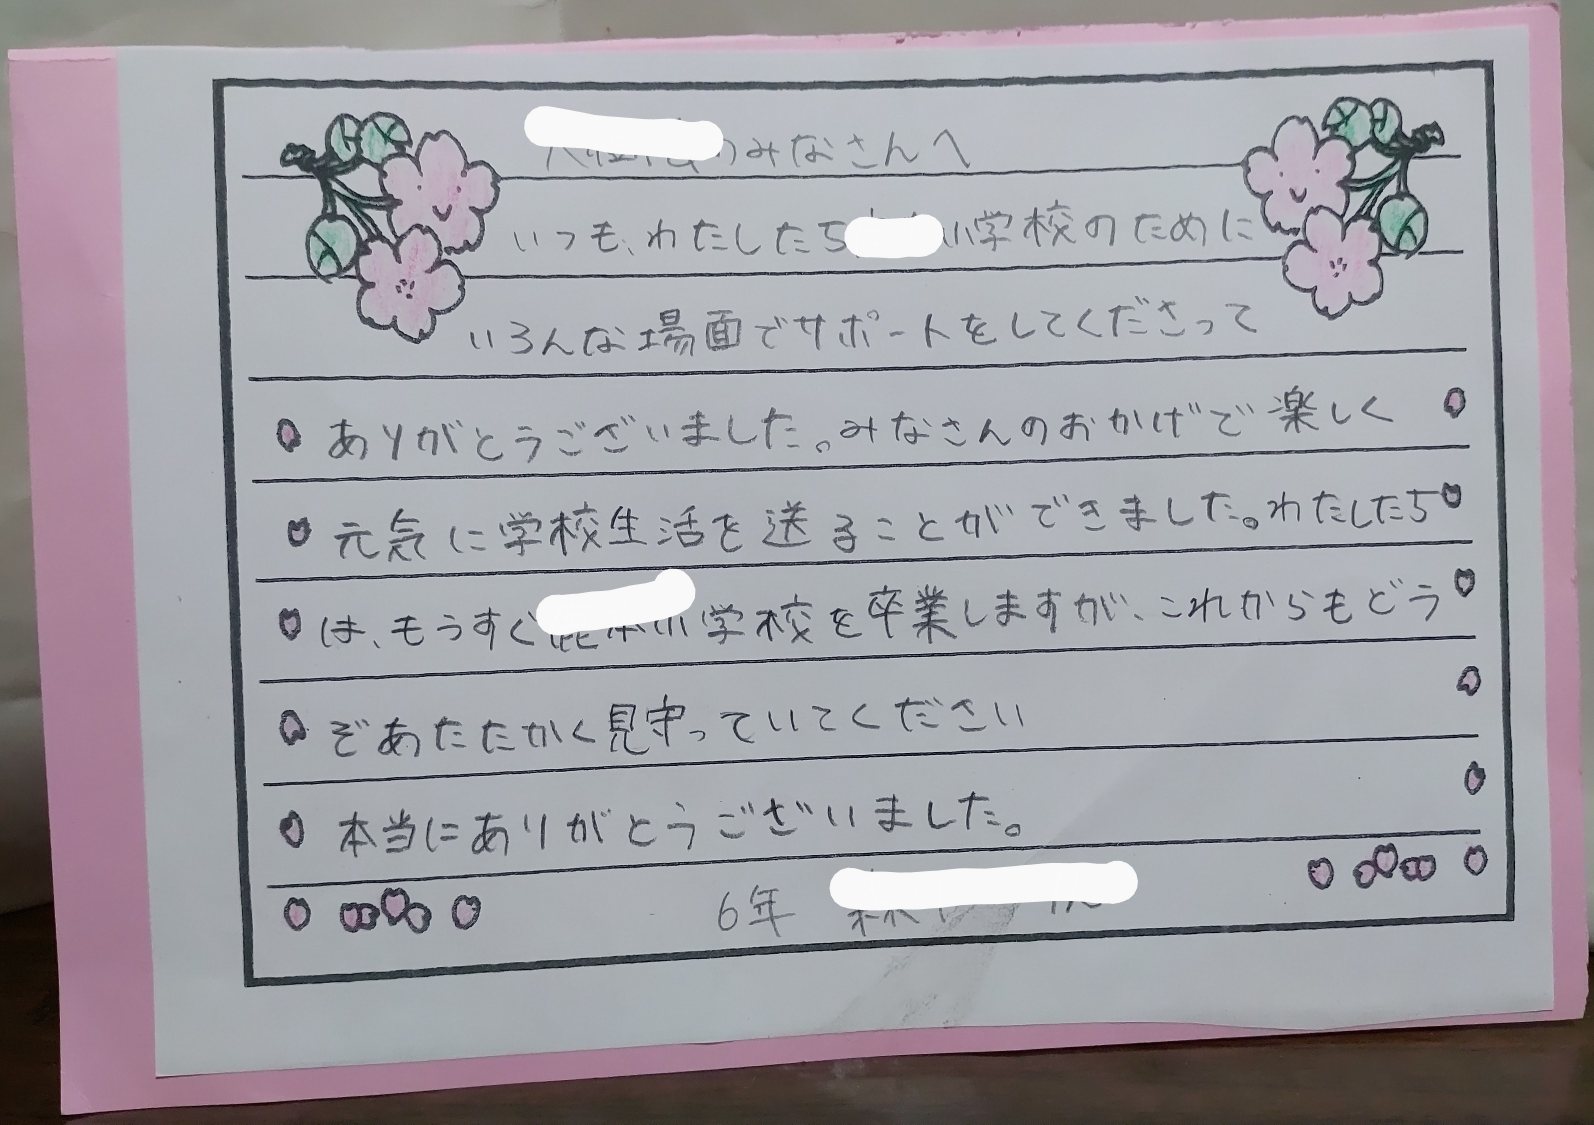 のみなさんへ
いつも、わたしたち小学校のために
いろんな場面でサポートをしてくださって
ありがとうございました。みなさんのおかげで楽しく
元気に学校生活を送ることができました。わたしたち
は、もうすぐ小学校を卒業しますが、これからもどう
ぞあたたかく見守っていてください
本当にありがとうございました。
6年